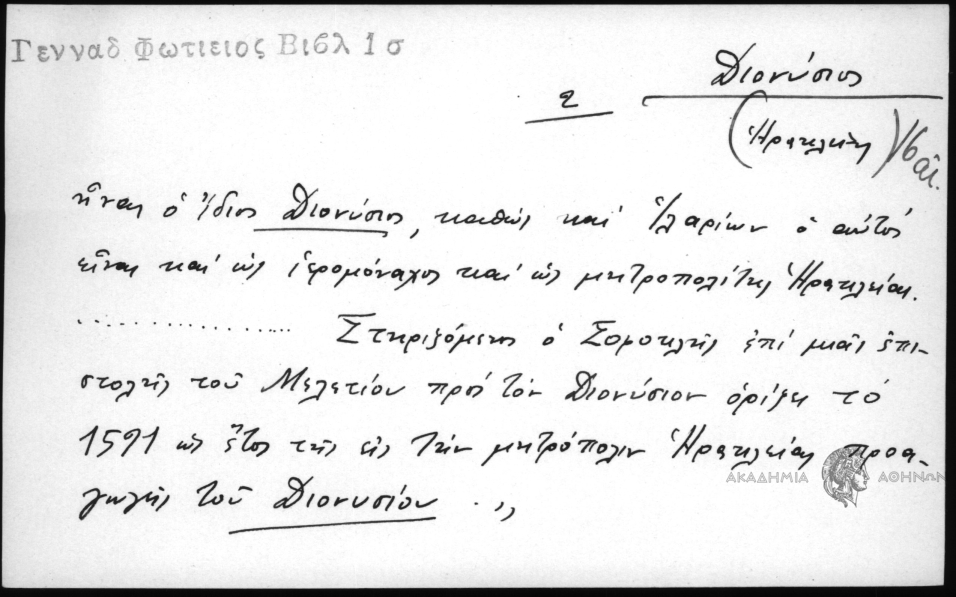 Γενναδ Φωτιειος Βιβλ 1 σ
2 Διονύσιος
(Ἡρακλείας) 16 αἰ.
εἶναι ὁ ἴδιος Διονύσιος, καθὼς καὶ Ἱλαρίων ὁ αὐτὸς
εἶναι καὶ ὡς ἱερομόναχος καὶ ὡς μητροπολίτης Ἡρακλείας.
.................. Στηριζόμενος ὁ Σοφοκλῆς ἐπὶ μιᾶς ἐπι-
στολῆς τοῦ Μελετίου πρὸς τὸν Διονύσιον ὁρίζει τὸ
1591 ὡς ἔτος τῆς εἰς τὴν μητρόπολιν Ἡρακλείας προα-
γωγῆς τοῦ Διονυσίου .,,
ΑΚΑΔΗΜΙΑ ΑΘΗΝΩΝ